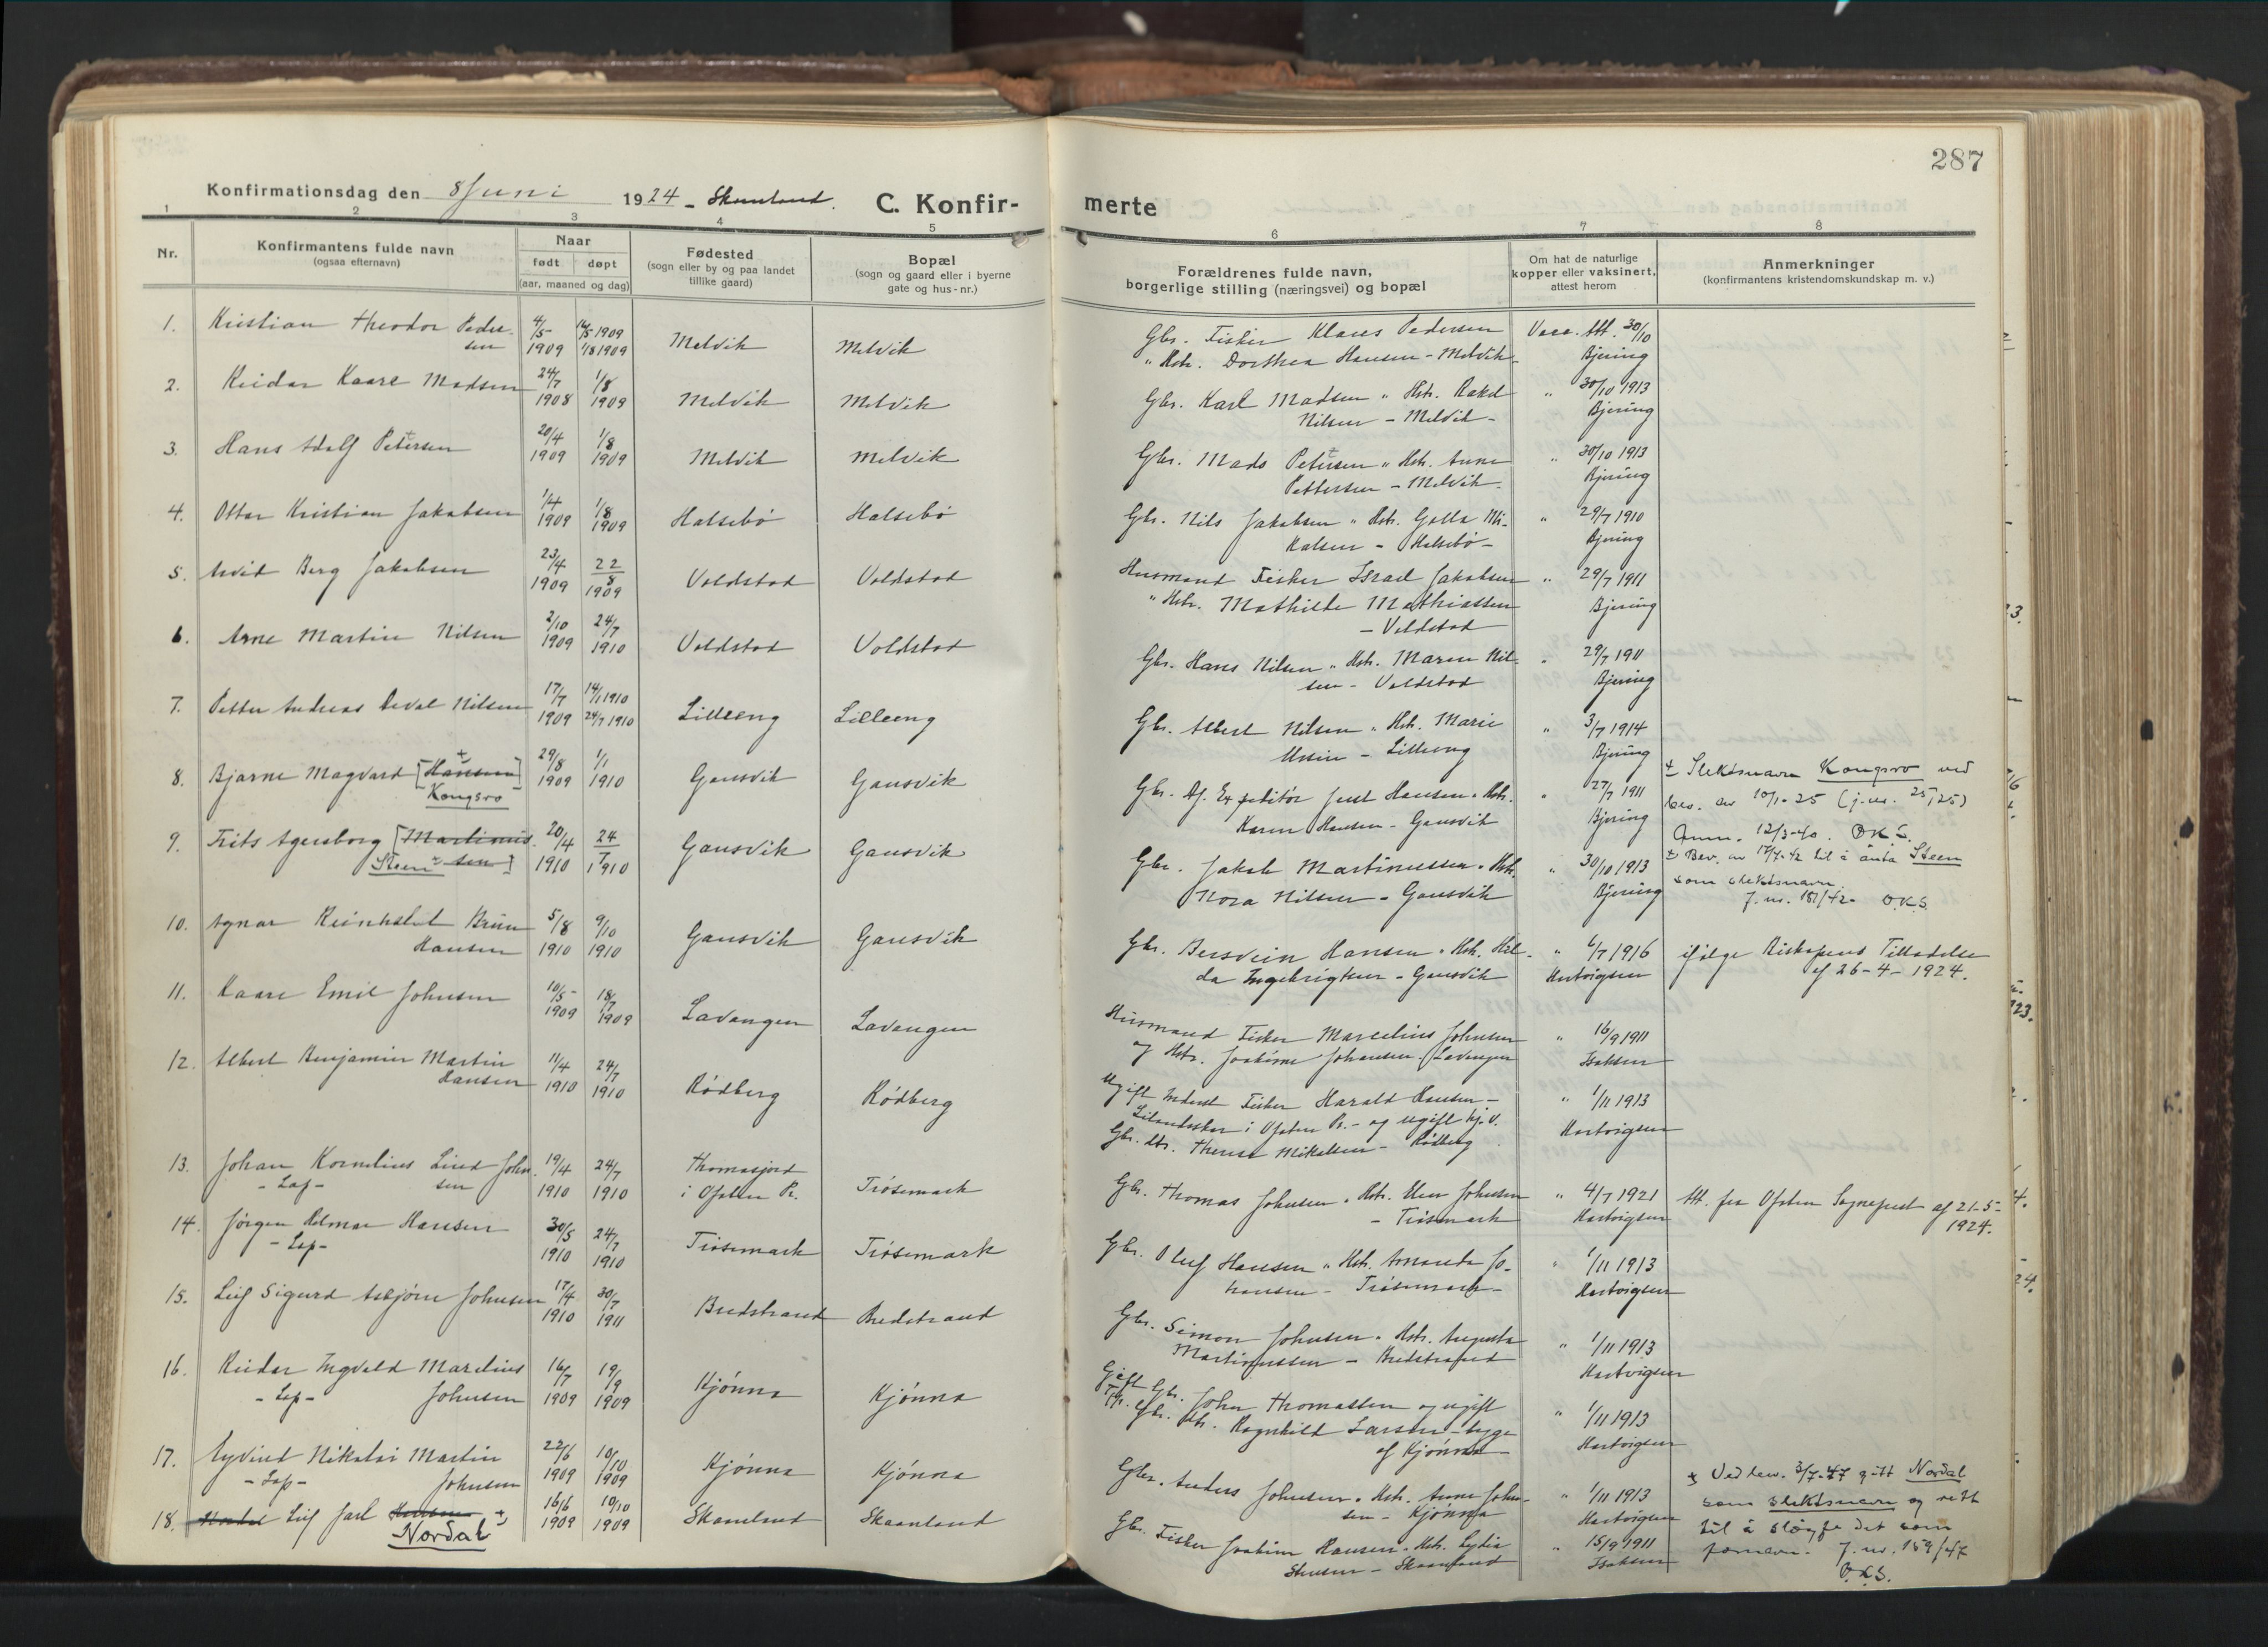 287
Konfirmationsdag den 8 Juni 1924 - Skaanland.
C. Konfirmerte
1 2 3 4 5 6 7 8
Nr.
Konfirmantens fulde navn
(ogsaa efternavn)
Naar
født døpt
(aar, maaned og dag)
Fødested
(sogn eller by og paa landet
tillike gaard)
Bopæl
(sogn og gaard eller i byerne
gate og hus-nr.)
Forældrenes fulde navn,
borgerlige stilling (næringsvei) og bopæl
Om hat de naturlige
kopper eller vaksinert,
attest herom
Anmerkninger
(konfirmantens kristendomskundskap m. v.)
1. Kristian Theodor Peder-
sen
4/5 1909 16/5 1909 1/8 1909 Melvik Melvik
Gbr. Fisker Klaus Pedersen
" Hstr. Dorthea Hansen - Melvik -
Vacc. Att. 30/10
Bjering
2. Reidar Kaare Madsen
24/7 1908 1/8 1909 Melvik Melvik
Gbr. Karl Madsen " Hstr. Rakel
Nilsen - Melvik -
" 30/10 1913
Bjering
3. Hans Adolf Petersen
20/4 1909 1/8 1909 Melvik Melvik
Gbr. Mads Petersen " Hstr. Anne
Pettersen - Melvik -
" 30/10 1913
Bjering
4. Ottar Kristian Jakobsen
1/4 1909 1/8 1909 Halsebø Halsebø
Gbr. Nils Jakobsen " Hstr. Golla Mi-
kalsen - Halsebø -
" 29/7 1910
Bjering
5. Arvid Berg Jakobsen
23/4 1909 22/8 1909 Voldstad Voldstad
Husmand Fisker Israel Jakobsen
" Hstr. Mathilde Mathiassen
- Voldstad
" 29/7 1911
Bjering
6. Arne Martin Nilsen
2/10 1909 24/7 1910 Voldstad Voldstad
Gbr. Hans Nilsen " Hstr. Maren Nil-
sen - Voldstad
" 29/7 1911
Bjering
7. Petter Andreas Nilsen
17/7 1909 14/1 1910 24/7 1910 Lilleeng Lilleeng
Gbr. Albert Nilsen " Hstr. Marie
- Lilleeng
" 3/7 1914
Bjering
8. Bjarne Magvard [Hansen] +
Kongsro
29/8 1909 1/1 1910 Gausvik Gausvik
Gbr. Af. Expeditør Just Hansen " Hstr.
Karen Hansen - Gausvik
" 27/7 1911
Bjering
+ Slektsnavn Kongsro ved
bev. av 10/1-25 (j.nr. 25/25)
Anm. 12/3-40. O.K.S.
9. Frits Agersborg [Martinus-
Steen + sen]
20/4 1910 24/7 1910 Gausvik Gausvik
Gbr. Jakob Martinussen " Hstr.
Nora Nilsen - Gausvik
" 30/10 1913
Bjering
+ Bev. av 17/7-42 til å anta Steen
som slektsnavn.
J. nr. 181/42- O.K.S.
10. Agnar Reinholdt Bruun
Hansen
5/8 1910 9/10 1910 Gausvik Gausvik
Gbr. Bersvein Hansen " Hstr. Hil-
da Ingebrigtsen - Gausvik
" 6/7 1916
Hartvigsen
ifølge Biskopens Tilladelse
af 26-4-1924.
11. Kaare Emil Johnsen
10/5 1909 18/7 1909 Lavangen Lavangen
Husmand Fisker Marcelius Johnsen
og Hstr. Joakime Johansen - Lavangen
" 16/9 1911
Isaksen
12. Albert Benjamin Martin
Hansen
11/4 1910 24/7 1910 Rødberg Rødberg
Ugift Inderst Fisker Harald Hansen -
i Ofoten Pr. - og ugift hj.v.
Gbr. dtr. Therese Mikalsen - Rødberg
" 1/11 1913
Hartvigsen
13. Johan Kornelius Lind John-
- Lap - sen
19/4 1910 24/7 1910 Thomasjord
i Ofoten Pr. Trøsemark
Gbr. Thomas Johnsen " Hstr. Elen Johnsen
- Trøsmark
" 4/7 1921
Hartvigsen
Att. fra Ofoten Sogneprest af 21-5-
1924.
14. Jørgen Hilmar Hansen
- Lap -
30/5 1910 24/7 1910 Trøsemark Trøsemark
Gbr. Oluf Hansen " Hstr. Amanda Jo-
hansen - Trøsemark -
" 1/11 1913
Hartvigsen
15. Leif Sigurd Asbjørn Johnsen
17/4 1910 30/7 1911 Bredstrand Bredstrand
Gbr. Simon Johnsen " Hstr. Augusta
Martinussen - Bredstrand
" 1/11 1913
Hartvigsen
16. Reidar Ingvald Marelius
- Lap - Johnsen
16/7 1909 19/9 1909 Kjønna Kjønna
Gift Gbr. John Thomassen og ugift
Gbr. dtr. Ragnhild Larsen - begge
af Kjønna -
" 1/11 1913
Hartvigsen
17. Eyvind Nikolai Martin
- Lap - Johnsen
22/6 1909 10/10 1909 Kjønna Kjønna
Gbr. Anders Johnsen " Hstr. Anne John-
sen - Kjønna
" 1/11 1913
Hartvigsen
18. Nordal Leif Jarl Hansen +
Nordal
16/6 1909 10/10 1909 Skaanland Skaanland
Gbr. Fisker Joakim Hansen " Hstr. Lydia
Stensen - Skaanland
" 15/9 1911
Isaksen
+ Ved bev. 3/7-47 gitt Nordal
som slektsnavn og rett
til å sløyfe det som
fornavn. J. nr. 159/47
O.K.S.